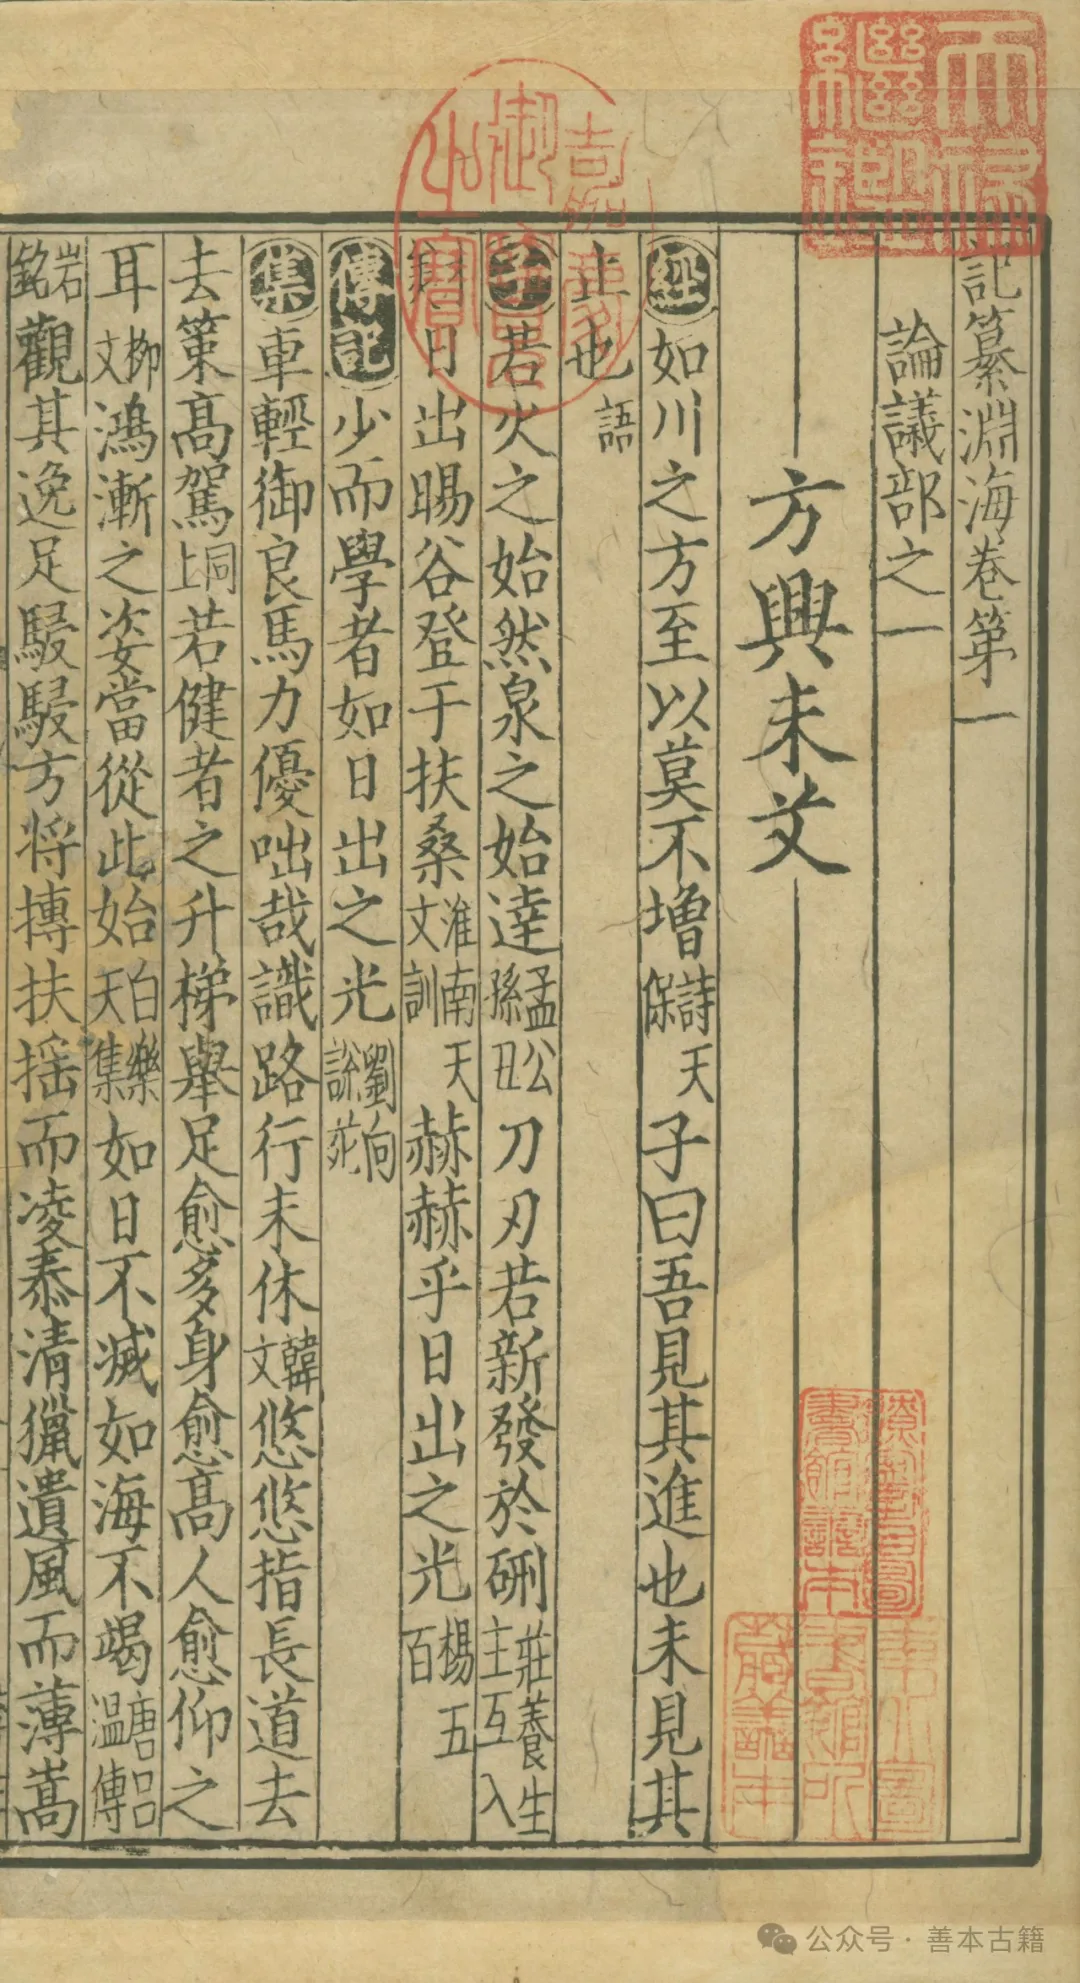 記纂淵海卷第一
論議部之一
方興未艾
經 如川之方至以莫不增 詩天保 子曰吾見其進也未見其
止也 語
子 若火之始然泉之始達 孟公孫丑 刀刃若新發於硎 莊養生主互入
日出暘谷登于扶桑 淮南天文訓 赫赫乎日出之光 楊五百
傳記 少而學者如日出之光 劉向說苑
集 車輕御良馬力優咄哉識路行未休 韓文 悠悠指長道去
去策高駕 同上 若健者之升梯舉足愈多身愈高人愈仰之
耳 柳文 鴻漸之姿當從此始 白樂天集 如日不減如海不竭 唐呂溫傳
岩銘 觀其逸足駸駸方將摶扶搖而凌泰清獵遺風而薄嵩
天祿繼鑑
嘉慶御覽之寶
公众号·善本古籍